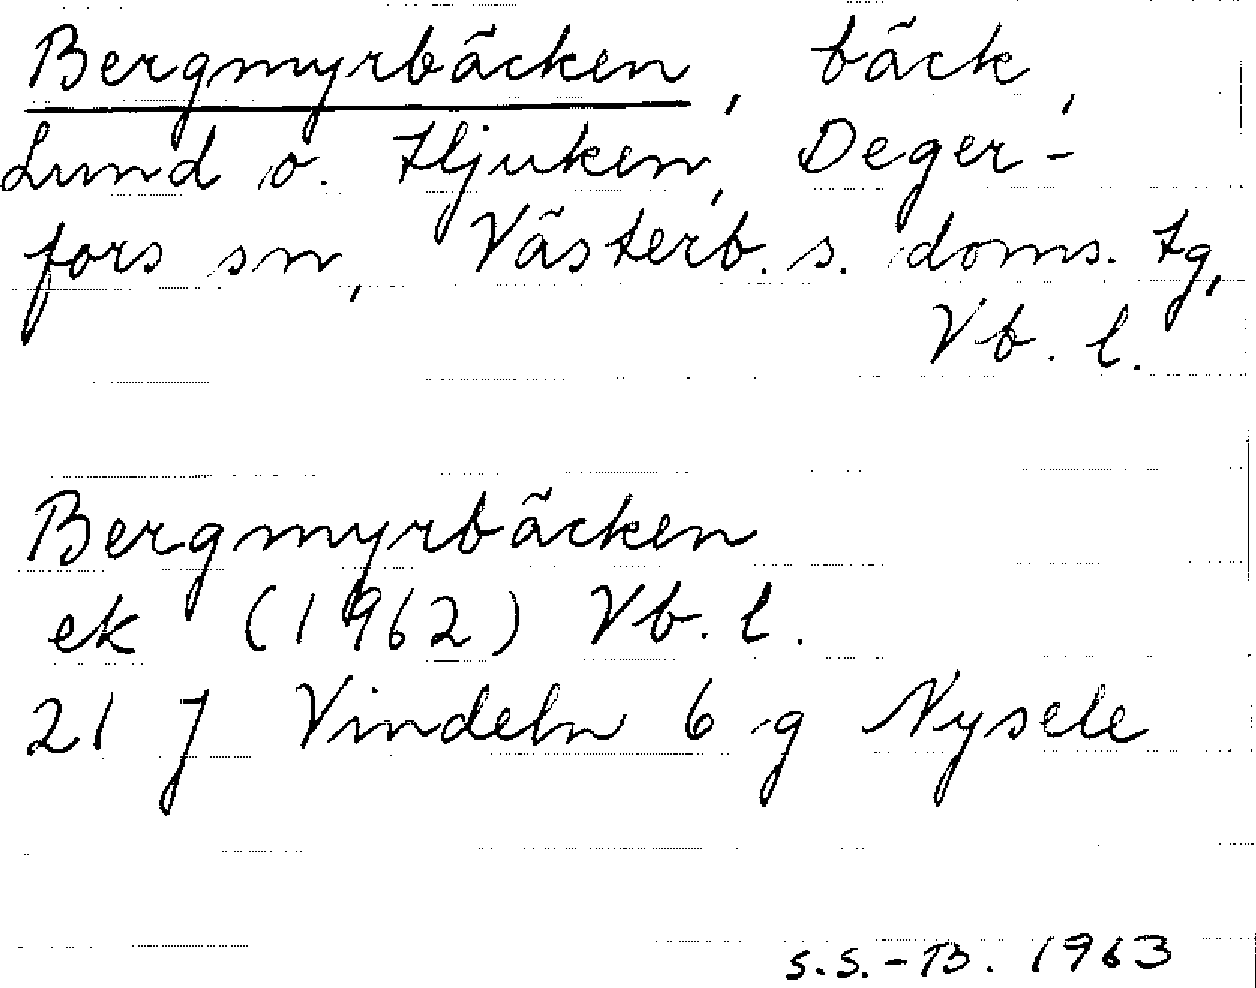 Bergmyrbäcken, bäck,
Lund o. Hjuken, Deger-
fors sn, Västerb. s. doms. tg,
Vb. l.
Bergmyrbäcken
ek (1962) Vb. l.
21 J Vindeln 6 g Nysele
S.S.-B. 1963